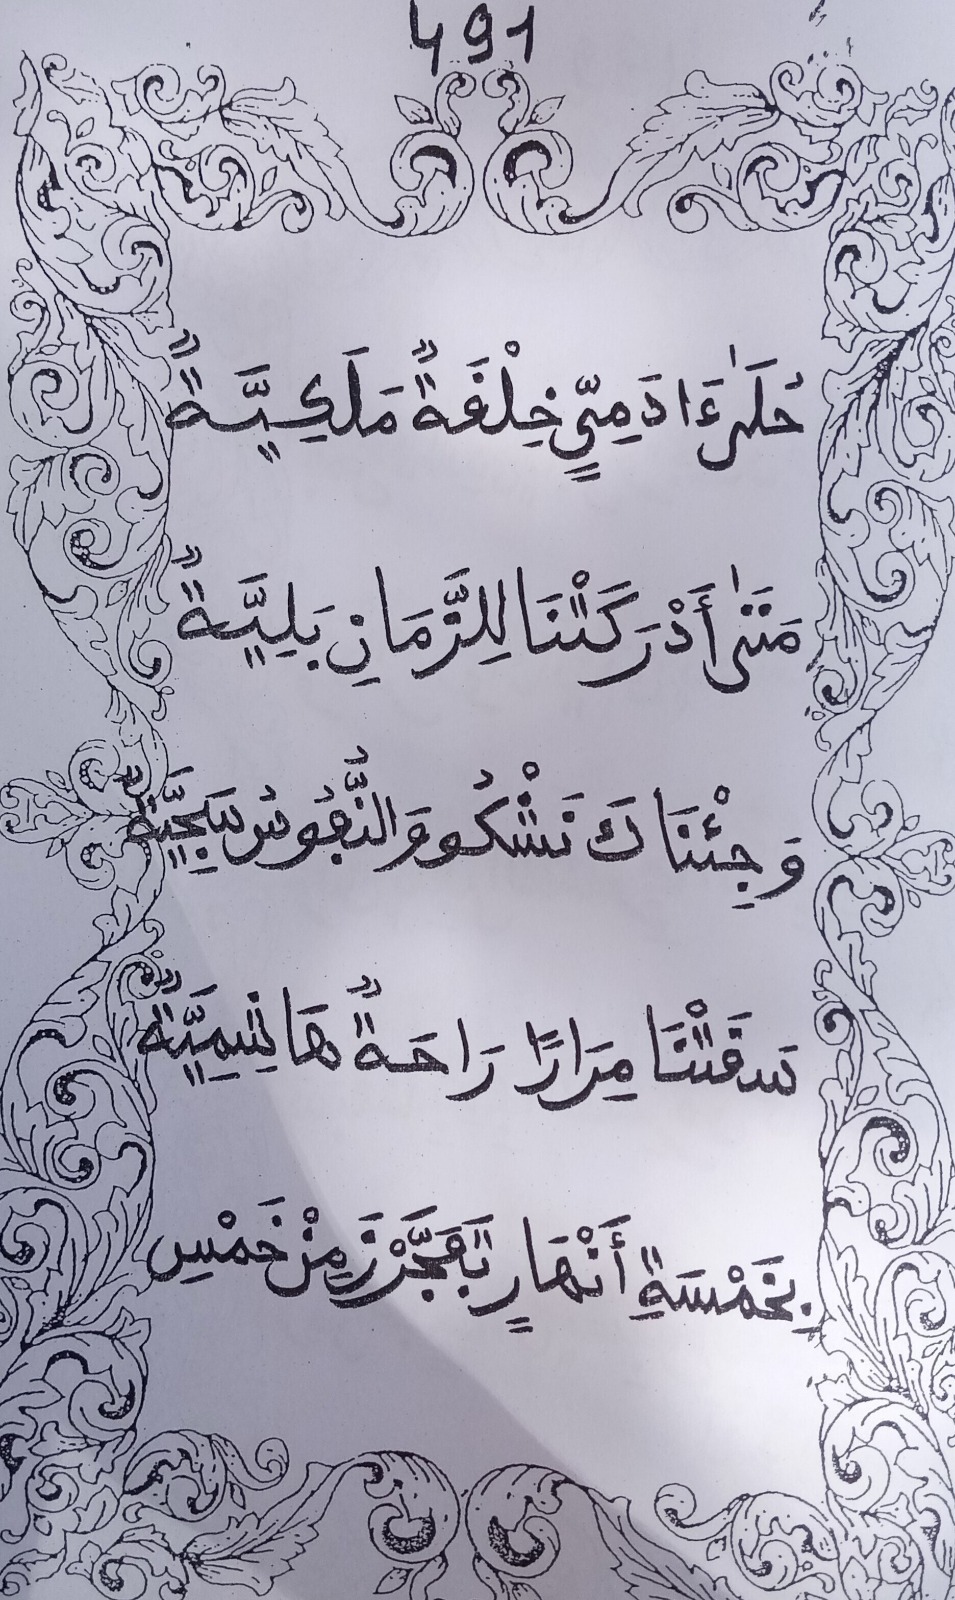 491
حُلَىٰ ءَادَمِيٍّ خِلْقَةٌ مَلَكِيَّةٌ
مَتَىٰ أَدْرَكَتْنَا لِلزَّمَانِ بَلِيَّةٌ
وَجِئْنَاكَ نَشْكُو وَالنُّفُوسُ سَجِيَّةٌ
سَقَتْنَا مِرَارًا رَاحَةٌ هَاشِمِيَّةٌ
بِخَمْسَةِ أَنْهَارٍ تَفَجَّرْنَ مِنْ خَمْسِ